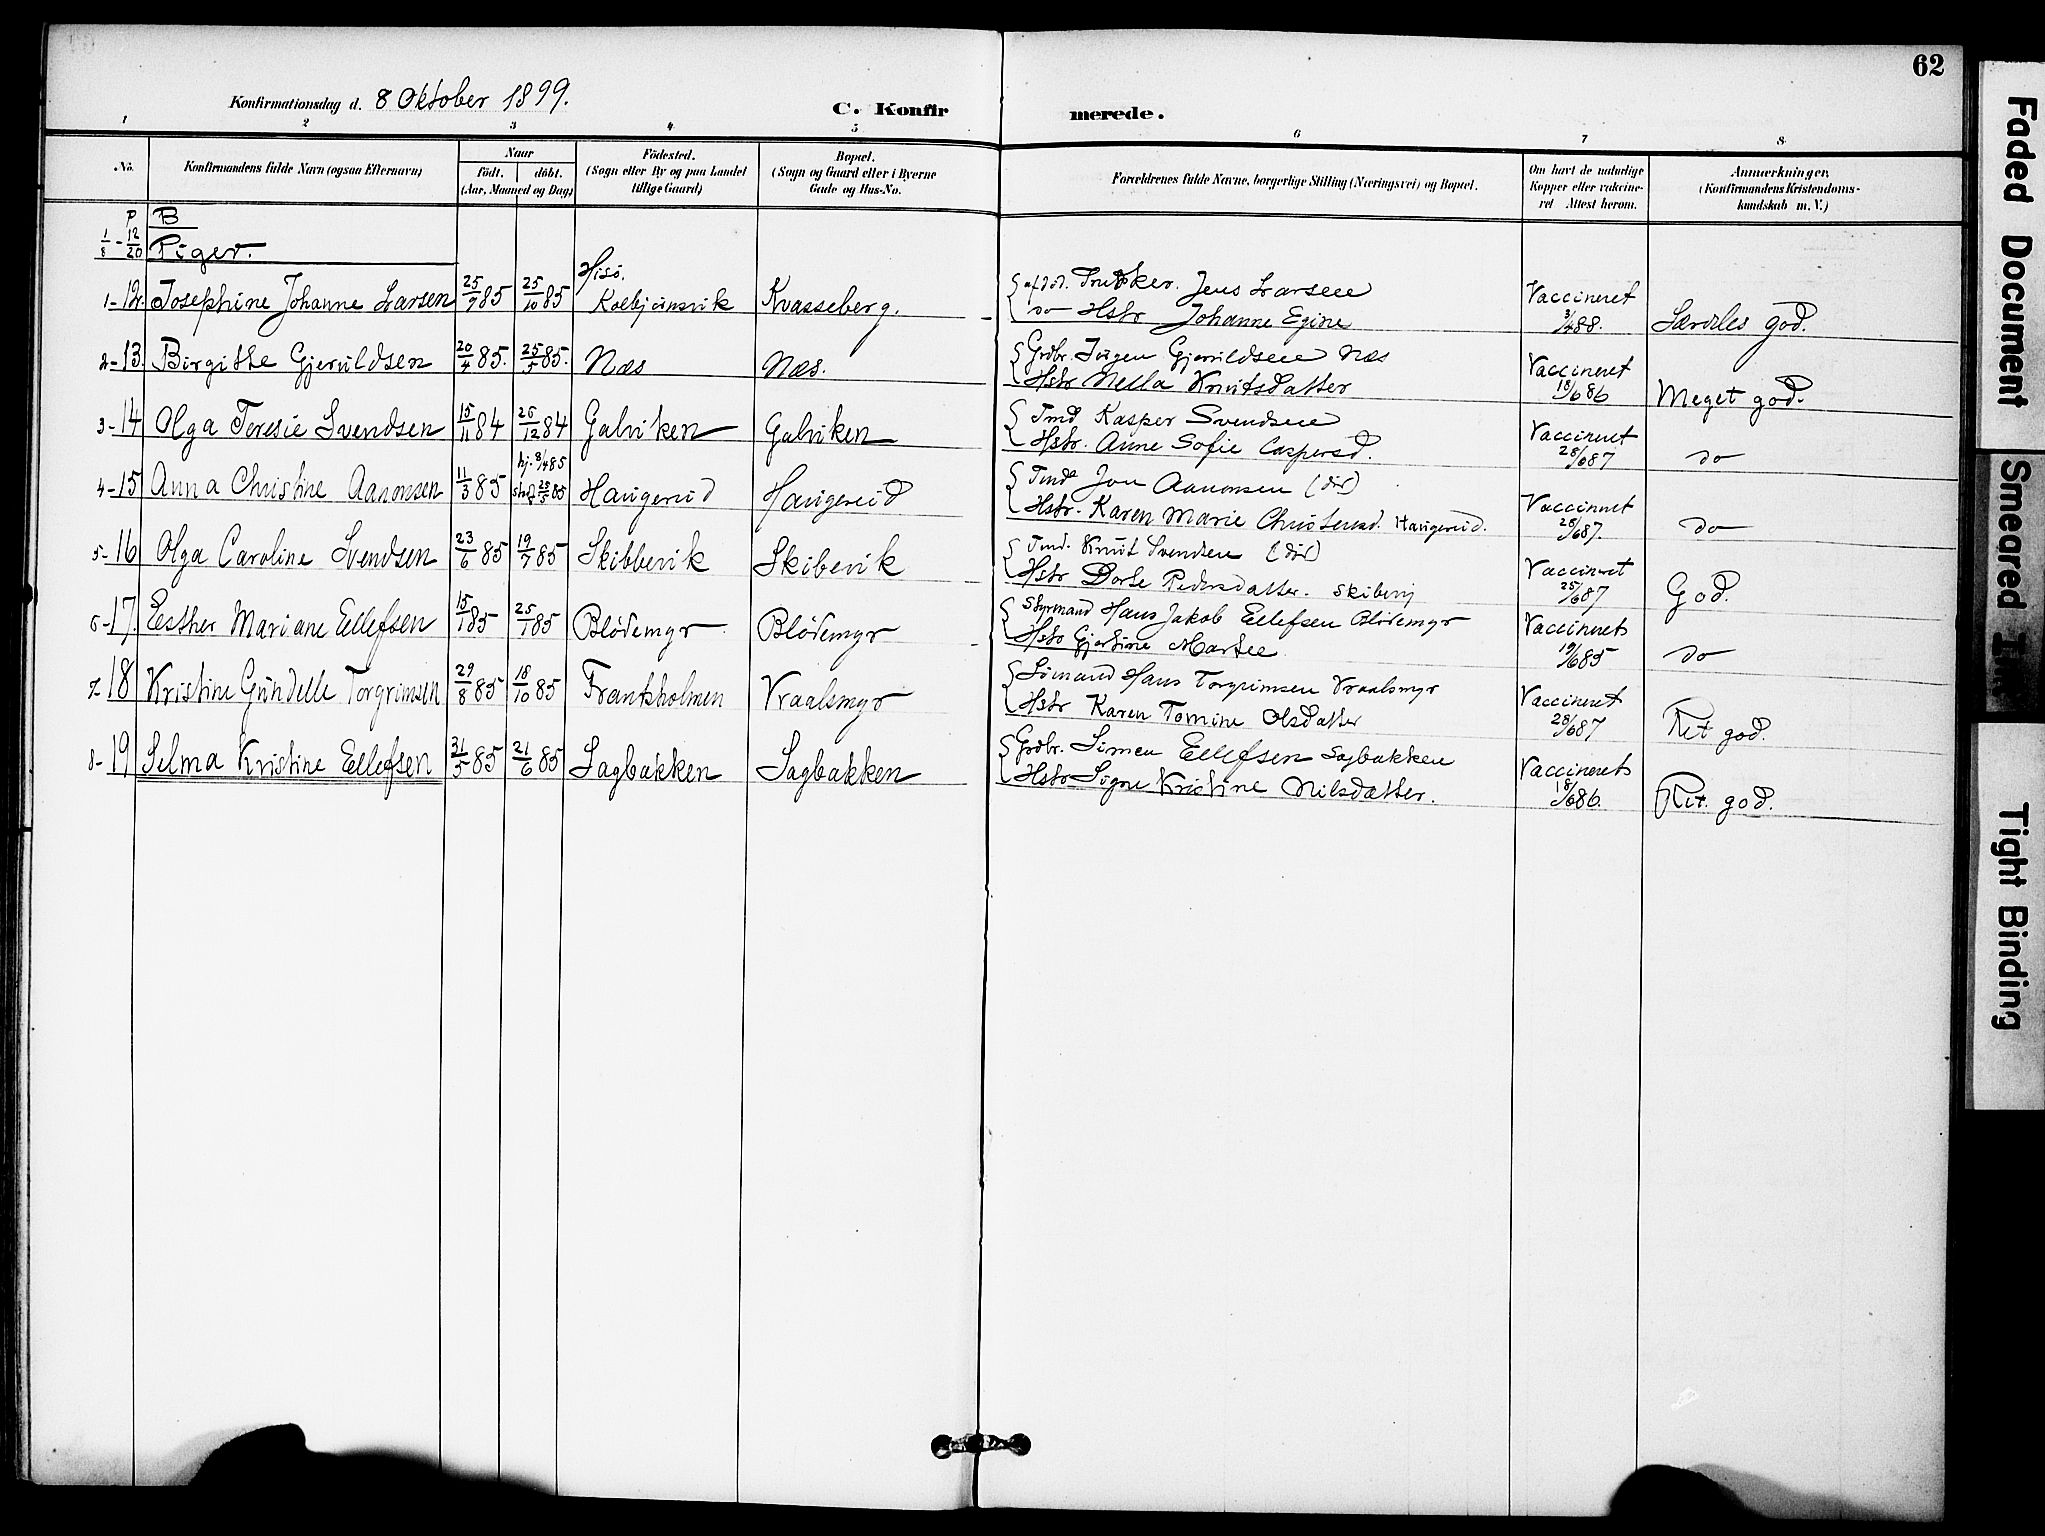 62
Konfirmationsdag d. 8 Oktober 1899.
C. Konfirmerede.
1 2 3 4 5 6 7 8
No.
Konfirmandens fulde Navn (ogsaa Efternavn)
Naar
födt. döbt.
(Aar, Maaned og Dag)
Födested.
(Sogn eller By og paa Landet
tillige Gaard)
Bopæl.
(Sogn og Gaard eller i Byerne
Gade og Hus-No.
Forældrenes fulde Navne, borgerlige Stilling (Næringsvei) og Bopæl.
Om havt de naturlige
Kopper eller vakcine-
ret Attest herom.
Anmærkninger.
(Konfirmandens Kristendoms-
kundskab m. V.)
P B
1/8 - 12/20 Piger.
1-12. Josephine Johanne Larsen 25/9 85 25/10 85 Hisö. Kolbjørnsvik Kvasseberg.
afdöd. Jens Larsen
do Hstr Johanne Egine
Vaccineret 3/4 88. Særdeles god.
2-13. Birgithe Gjeruldsen 20/4 85. 25/5 85. Næs Næs.
Grdbr. Jörgen Gjeruldsen Næs
Hstr Nella Knutsdatter
Vaccineret 18/6 86 Meget god.
3-14 Olga Teresie Svendsen 15/11 84 26/12 84 Galviken Galviken
Tmd Kasper Svendsen
Hstr. Anne Sofie Caspersd.
Vaccineret 28/6 87 do
4-15 Anna Christine Aanonsen 11/3 85 hj. 8/4 85 stadf. 25/5 85 Haugerud Haugerud
Tmd Jon Aanonsen
Hstr. Karen Marie Christensd. Haugerud.
Vaccineret 28/6 87. do
5-16 Olga Caroline Svendsen 23/6 85 19/7 85 Skibbevik Skibevik
Tmd. Knut Svendsen
Hstr Dorte Pedersdatter. Skibevig
Vaccineret 25/6 87 God.
6-17. Eesther Mariane Ellefsen 15/1 85 25/1 85 Blödemyr Blödemyr
Styrmand Hans Jakob Ellefsen Blödemyr
Hstr Gjertine Martee
Vaccineret 19/6 85 do
7-18 Kristine Gundelle Torgrimsen 29/8 85 18/10 85 Frantsholmen Vraalsmyr
Sömand Hans Torgrimsen Vraalsmyr
Hstr Karen Tomine Olsdatter
Vaccineret 28/6 87 Ret god.
8-19 Selma Kristine Ellefsen 31/5 85 21/6 85 Sagbakken Sagbakken
Grdbr. Simen Ellefsen Sagbakken
Hstr Signe Kristine Nilsdatter.
Vaccineret 18/6 86. Ret god.
Faded Document
Smeared Ink
Tight Binding